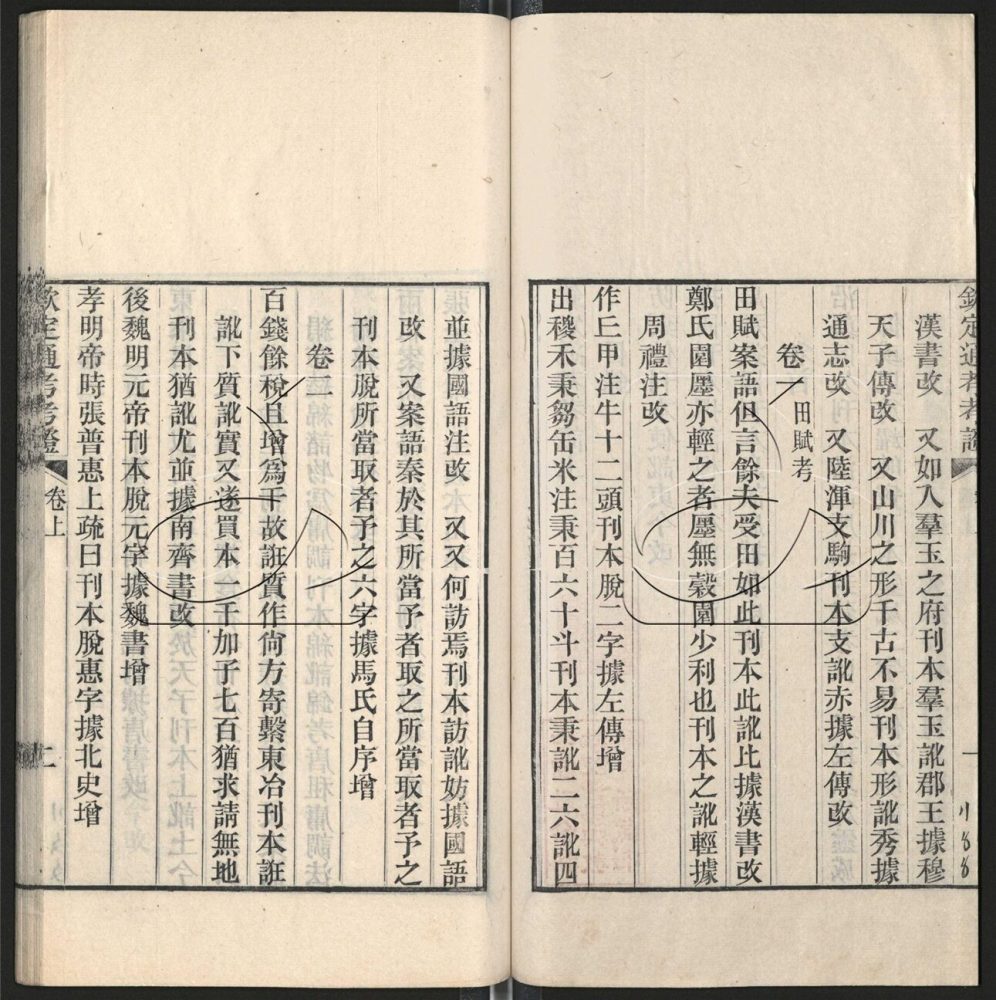 欽定通考考證
漢書改　又如入羣玉之府刊本羣玉訛郡王據穆
天子傳改　又山川之形千古不易刊本形訛秀據
通志改　又陸渾支駒刊本支訛赤據左傳改
卷一　田賦考
田賦案語但言餘夫受田如此刊本此訛比據漢書改
鄭氏園廛亦輕之者廛無穀園少利也刊本之訛輕據
周禮注改
作丘甲注牛十二頭刊本脫二字據左傳增
出稯禾秉芻缶米注秉百六十斗刊本秉訛二六訛四
並據國語注改　又又何訪焉刊本訪訛妨據國語
改　又案語秦於其所當予者取之所當取者予之
刊本脫所當取者予之六字據馬氏自序增
卷二
百錢餘稅且增爲千故誑質作尙方寄繫東冶刊本誑
訛下質訛實又遂買本一千加子七百猶求請無地
刊本猶訛尤並據南齊書改
後魏明元帝刊本脫元字據魏書增
孝明帝時張普惠上疏曰刊本脫惠字據北史增
欽定通考考證　卷上　二